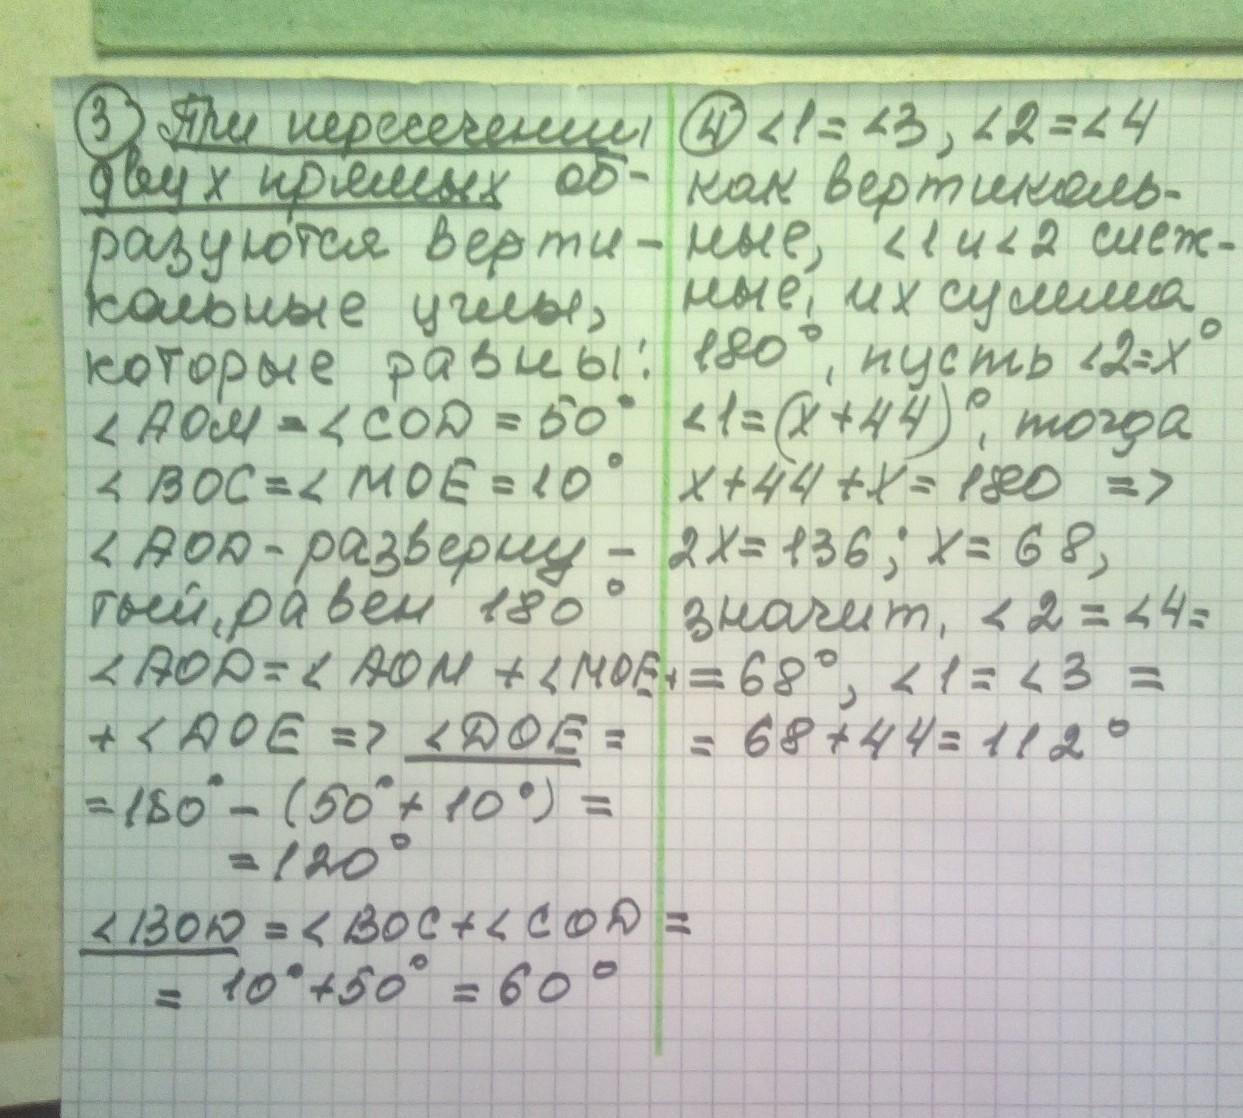 3 При пересечении
двух прямых об-
разуются верти-
кальные углы,
которые равны:
<AOM = <COD = 50°
<BOC = <MOE = 10°
<AOD - разверну-
тый, равен 180°
<AOD = < AOM + <MOE +
+ <DOE => <DOE =
= 180° - (50° + 10°) =
= 120°
<BOD = <BOC + <COD =
= 10° + 50° = 60°
4 <1 = <3, <2 = <4
как вертикаль-
ные, <1 и <2 смеж-
ные, их сумма
180°, пусть <2 = x°
<1 = (x + 44)°, тогда
x + 44 + x = 180 =>
2x = 136; x = 68,
значит, <2 = <4 =
= 68°, <1 = <3 =
= 68 + 44 = 112°